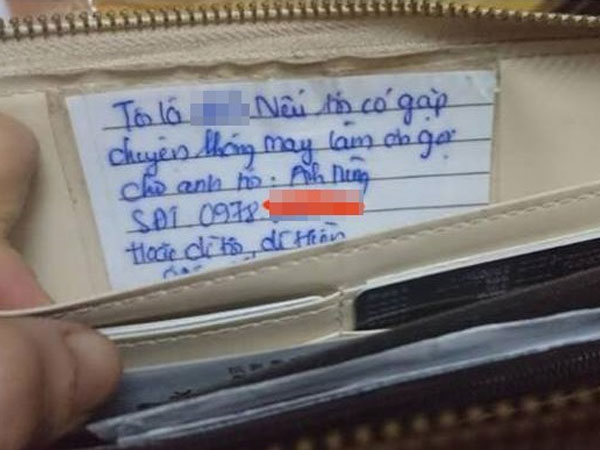 Tôi là Nếu tôi có gặp
chuyện không may làm ơn gọi
cho anh tôi. Anh Hùng
SĐT 0978
Hoặc dì tôi, dì thiền